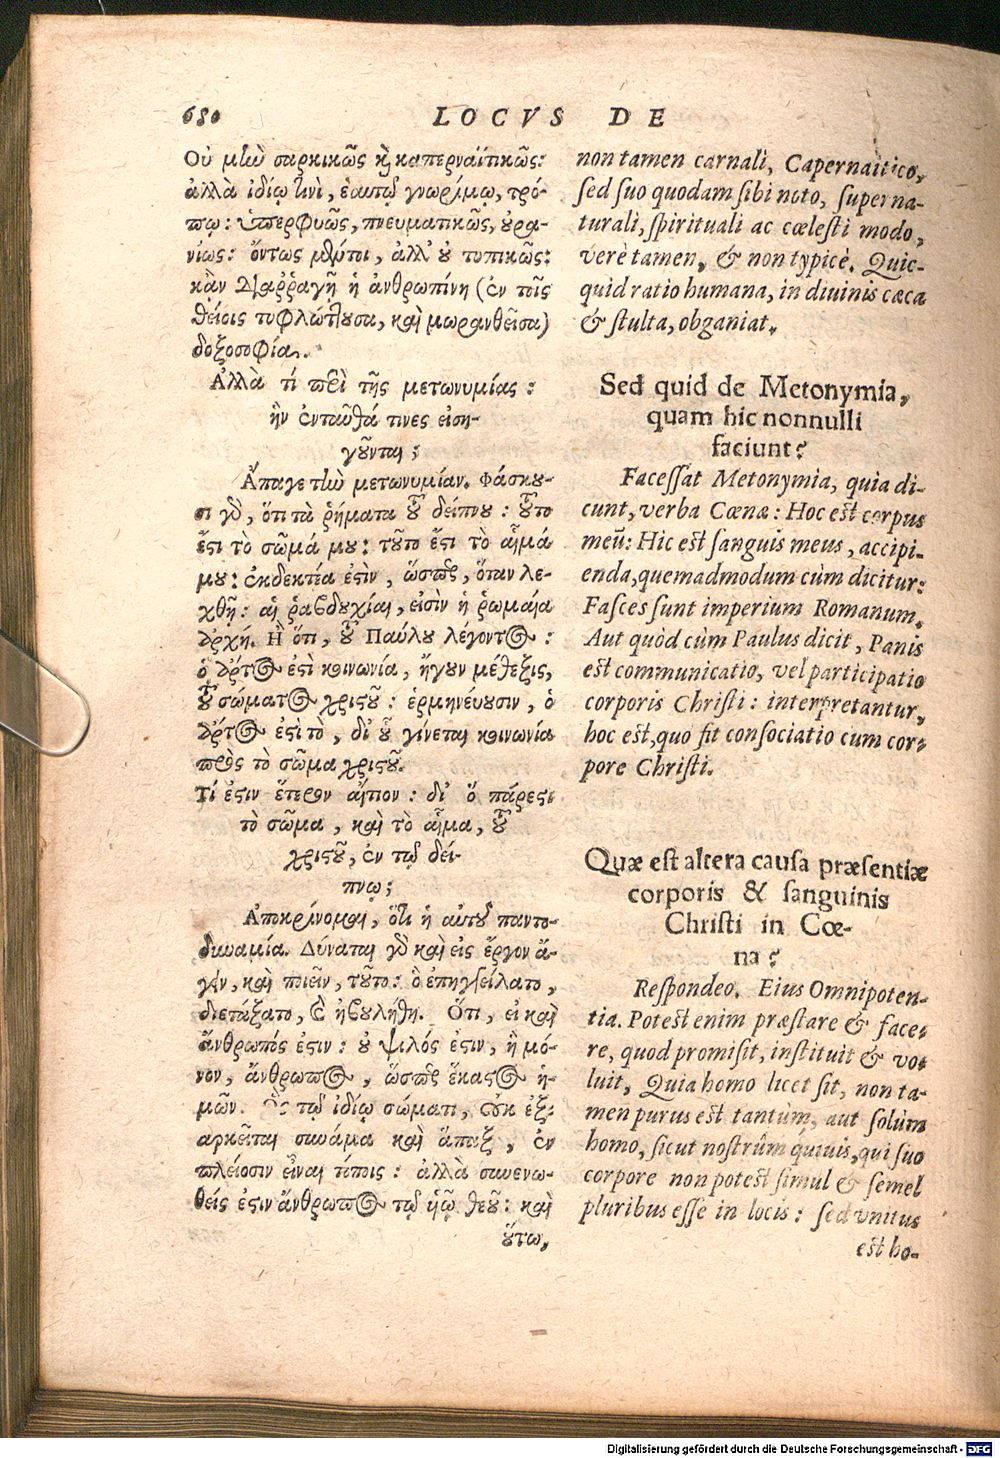 680
LOCVS DE
Οὐ μὴν σαρκικῶς καὶ καπερναϊτικῶς:
ἀλλὰ ἰδίῳ τινὶ, ἑαυτῷ γνωρίμῳ, τρό-
πῳ: ὑπερφυῶς, πνευματικῶς, οὐρα-
νίως: ὄντως μέντοι, ἀλλ' οὐ τυπικῶς:
κἂν διαῤῥαγῇ ἡ ἀνθρωπίνη (ἐν τοῖς
θείοις τυφλώττουσα, καὶ μωρανθεῖσα)
δοξοσοφία.
Ἀλλὰ τί περὶ τῆς μετωνυμίας:
ἣν ἐνταῦθά τινες εἰση-
γοῦνται;
Ἄπαγε τὴν μετωνυμίαν. Φάσκου-
σι γὰρ, ὅτι τὰ ῥήματα τοῦ δείπνου: τοῦτο
ἔστι τὸ σῶμά μου: τοῦτο ἔστι τὸ αἷμά
μου: ἐκδεκτέα ἐστὶν, ὥσπερ, ὅταν λε-
χθῇ: αἱ ῥαβδουχίαι, εἰσὶν ἡ ῥωμαία
ἀρχή. Ἢ ὅτι, τοῦ Παύλου λέγοντος:
ὁ ἄρτος ἐστὶ κοινωνία, ἤγουν μέθεξις,
τοῦ σώματος χριστοῦ: ἑρμηνέυουσιν, ὁ
ἄρτος ἐστὶ τὸ, δι' οὗ γίνεται κοινωνία
πρὸς τὸ σῶμα χριστοῦ.
Τί ἐστιν ἕτερον αἴτιον: δι' ὃ πάρεστι
τὸ σῶμα, καὶ τὸ αἷμα, τοῦ
χριστοῦ, ἐν τῷ δεί-
πνῳ;
Ἀποκρίνομαι, ὅτι ἡ αὐτοῦ παντο-
δυναμία. Δύναται γὰρ καὶ εἰς ἔργον ἄ-
γειν, καὶ ποιεῖν, τοῦτο: ὃ ἐπηγγείλατο,
διετάξατο, καὶ ἠβουλήθη. Ὅτι, εἰ καὶ
ἄνθρωπός ἐστιν: οὐ ψιλός ἐστιν, ἢ μό-
νον, ἄνθρωπος, ὥσπερ ἕκαστος ἡ-
μῶν. τῷ ἰδίῳ σώματι, οὐκ ἐξ-
αρκεῖται συνάμα καὶ ἅπαξ, ἐν
πλείοσιν εἶναι τόποις: ἀλλὰ συνενω-
θείς ἐστιν ἄνθρωπος τῷ υἱῷ θεοῦ: καὶ
οὕτω,
non tamen carnali, Capernaitico,
sed suo quodam sibi noto, superna-
turali, spirituali ac cœlesti modo,
verè tamen, & non typicè. Quic-
quid ratio humana, in diuinis cæca
& stulta, obganiat.
Sed quid de Metonymia,
quam hic nonnulli
faciunt?
Facessat Metonymia, quia di-
cunt, verba Cœnæ: Hoc est corpus
meũ: Hic est sanguis meus, accipi-
enda, quemadmodum cùm dicitur:
Fasces sunt imperium Romanum.
Aut quòd cùm Paulus dicit, Panis
est communicatio, vel participatio
corporis Christi: interpretantur,
hoc est, quo fit consociatio cum cor-
pore Christi.
Quæ est altera causa præsentiæ
corporis & sanguinis
Christi in Cœ-
na?
Respondeo. Eius Omnipoten-
tia. Potest enim præstare & face-
re, quod promisit, instituit & vo-
luit, Quia homo licet sit, non ta-
men purus est tantùm, aut solùm
homo, sicut nostrûm quiuis, qui suo
corpore non potest simul & semel
pluribus esse in locis: sed vnitus
est ho-
Digitalisierung gefördert durch die Deutsche Forschungsgemeinschaft - DFG